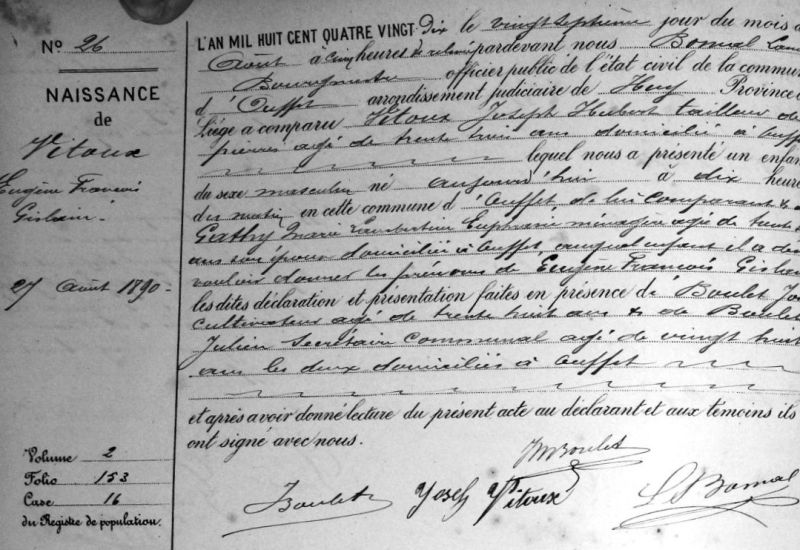 N° 26
NAISSANCE
de
Vitoux
Eugène Francois
Gislain.
27 Août 1890
Volume 2
Folio 153
Case 16
du Registre de population.
L'AN MIL HUIT CENT QUATRE VINGT Dix le vingt septième jour du mois d
Août à cinq heures de relevé pardevant nous Bomal
Bourgmestre officier public de l'état civil de la commun
d'Ouffet arrondissement judiciaire de Huy Province
Liége a comparu Vitoux Joseph Hubert tailleur de
pierres agé de trente huit ans domicilié à Ouffet
lequel nous a présenté un enfan
du sexe masculin né aujourd'hui à dix heure
du matin en cette commune d'Ouffet, de lui comparant &
Gathy Marie Lambertine Euphrasie ménagère agée de
ans son épouse domiciliés à Ouffet, auquel enfant il a
vouloir donner les prénoms de Eugène Francois Gislain
les dites déclaration et présentation faites en présence de Boulet
cultivateur agé de trente huit ans & de Boulet
Julien Secrétaire Communal agé de vingt huit
ans les deux domiciliés à Ouffet
et après avoir donné lecture du présent acte au déclarant et aux témoins ils
ont signé avec nous.
Boulet
Boulet Joseph Vitoux Bomal